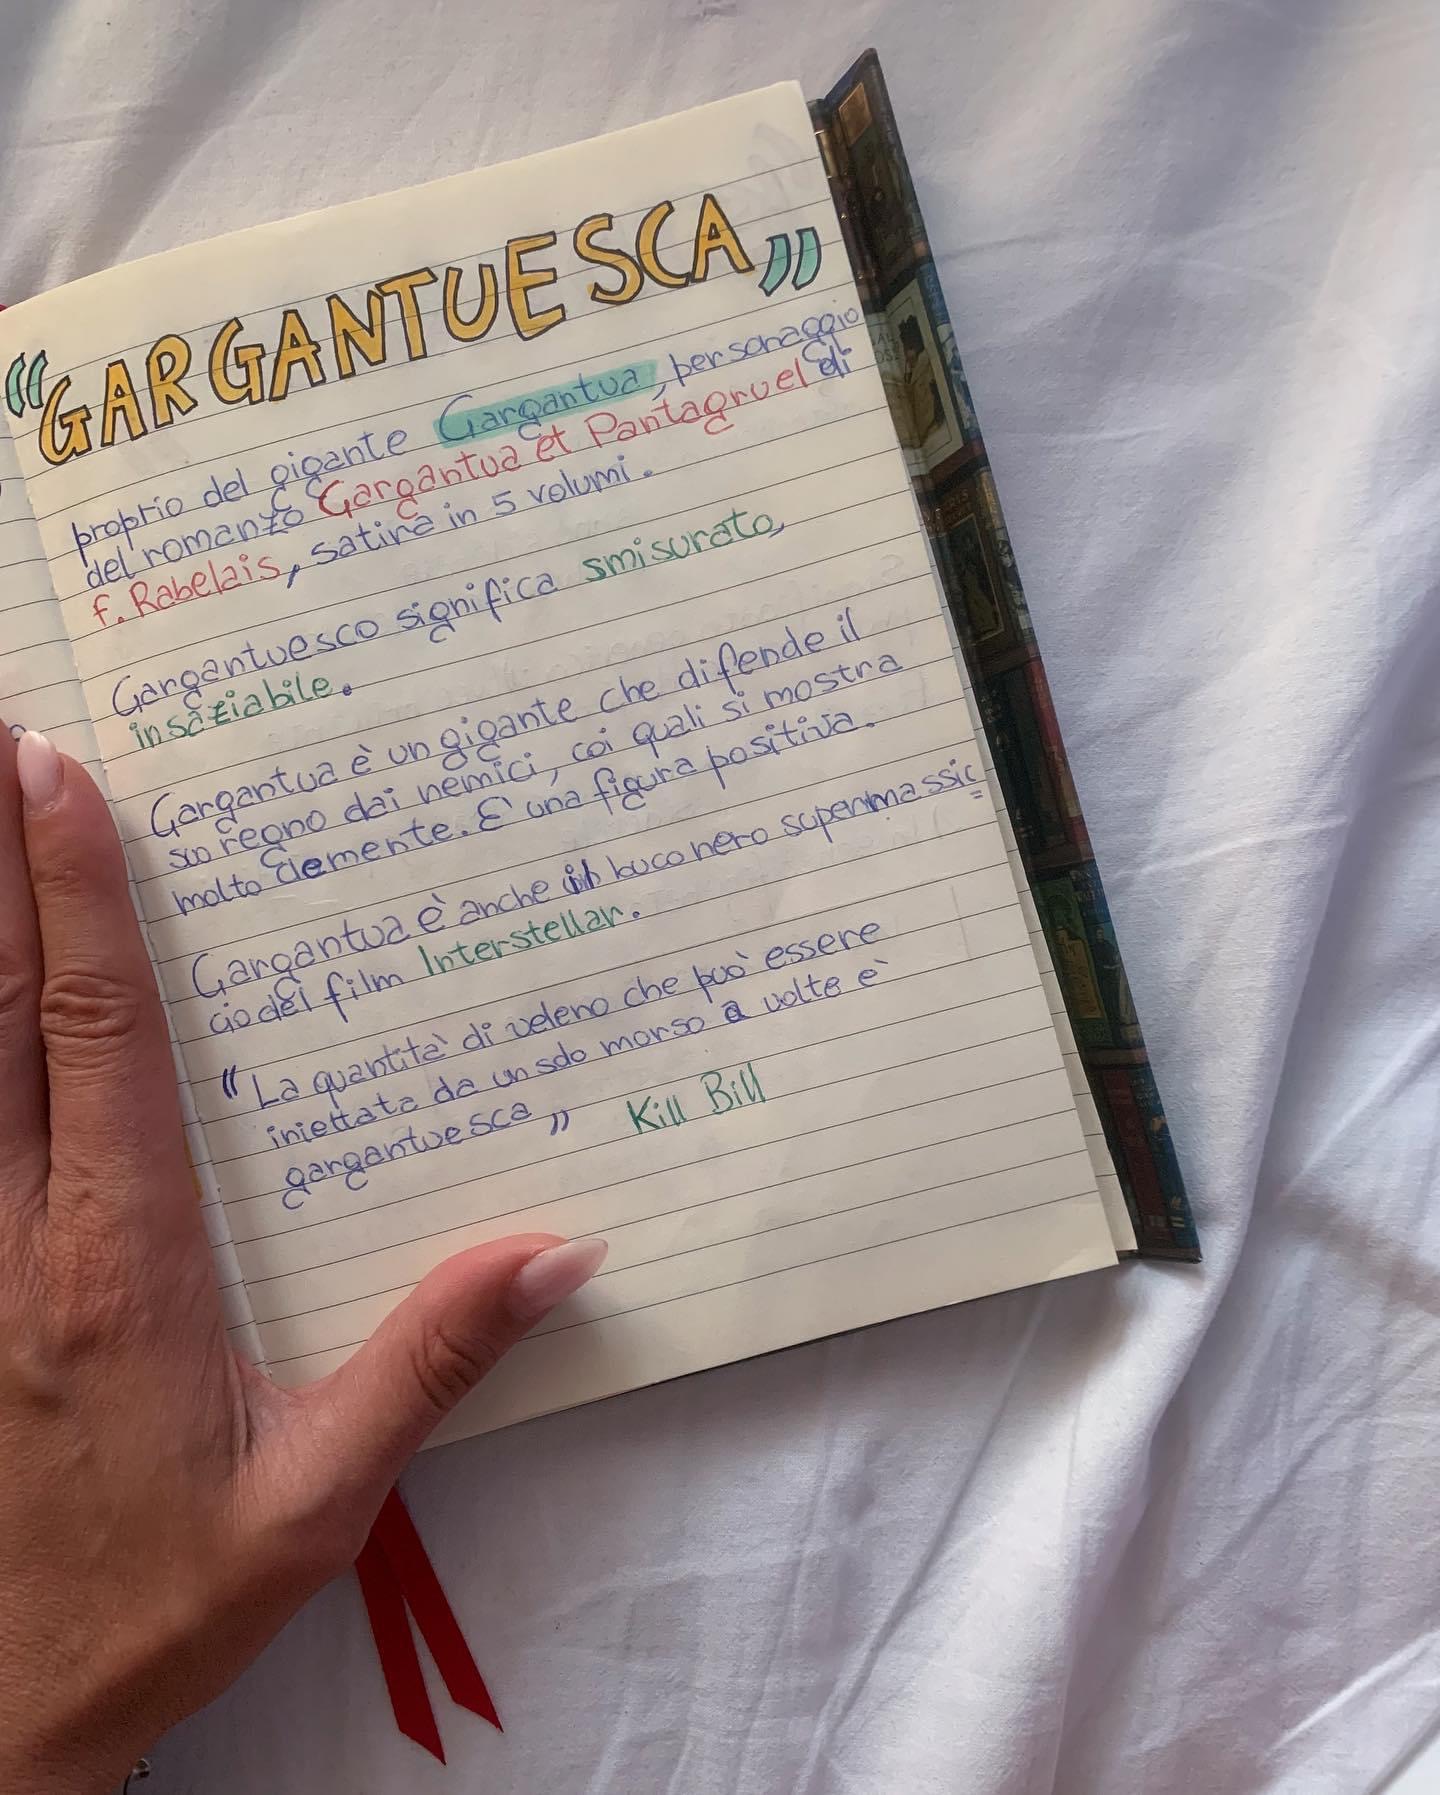 "GARGANTUESCA"
proprio del gigante Gargantua, personaggio
del romanzo Gargantua et Pantagruel di
F. Rabelais, satira in 5 volumi.
Gargantuesco significa smisurato,
insaziabile.
Gargantua è un gigante che difende il
suo regno dai nemici, coi quali si mostra
molto clemente. È una figura positiva.
Gargantua è anche il buco nero supermassic
cio del film Interstellar.
"La quantità di veleno che può essere
iniettata da un solo morso a volte è
gargantuesca" Kill Bill